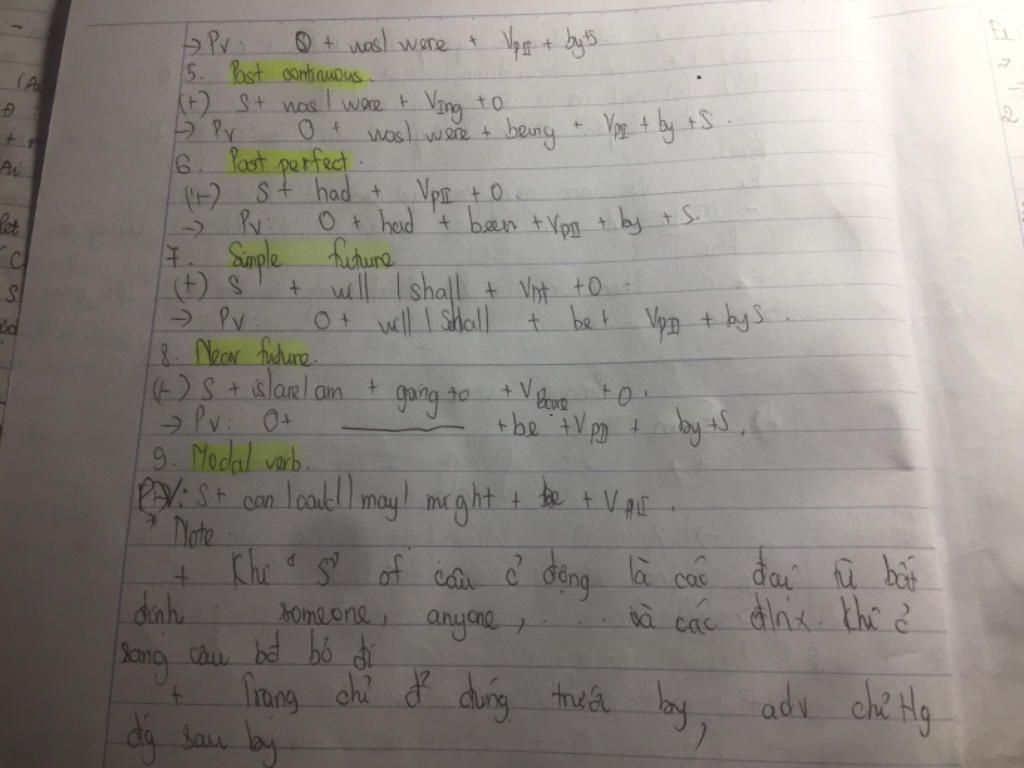 → PV: S + was/were + VpII + by+S
5. Past continuous.
(+) S + was/were + Ving + O
→ PV: O + was/were + being + VpII + by + S.
6. Past perfect.
(+) S + had + VpII + O.
→ PV: O + had + been + VpII + by + S.
7. Simple future
(+) S + will/shall + Vnt + O
→ PV: O + will/shall + be + VpII + by S.
8. Near future.
(+) S + is/are/am + going to + V + O.
→ PV: O + ______ + be + VpII + by + S.
9. Modal verb.
PV: S + can/could/may/might + be + VpII.
* Note
+ Khi "S" of câu c động là các đại từ bất
định: someone, anyone, .... và các đtnx. khi c
sang câu bđ bỏ đi
+ Trạng chỉ đ² đứng trước by, adv chỉ tg
đg sau by.